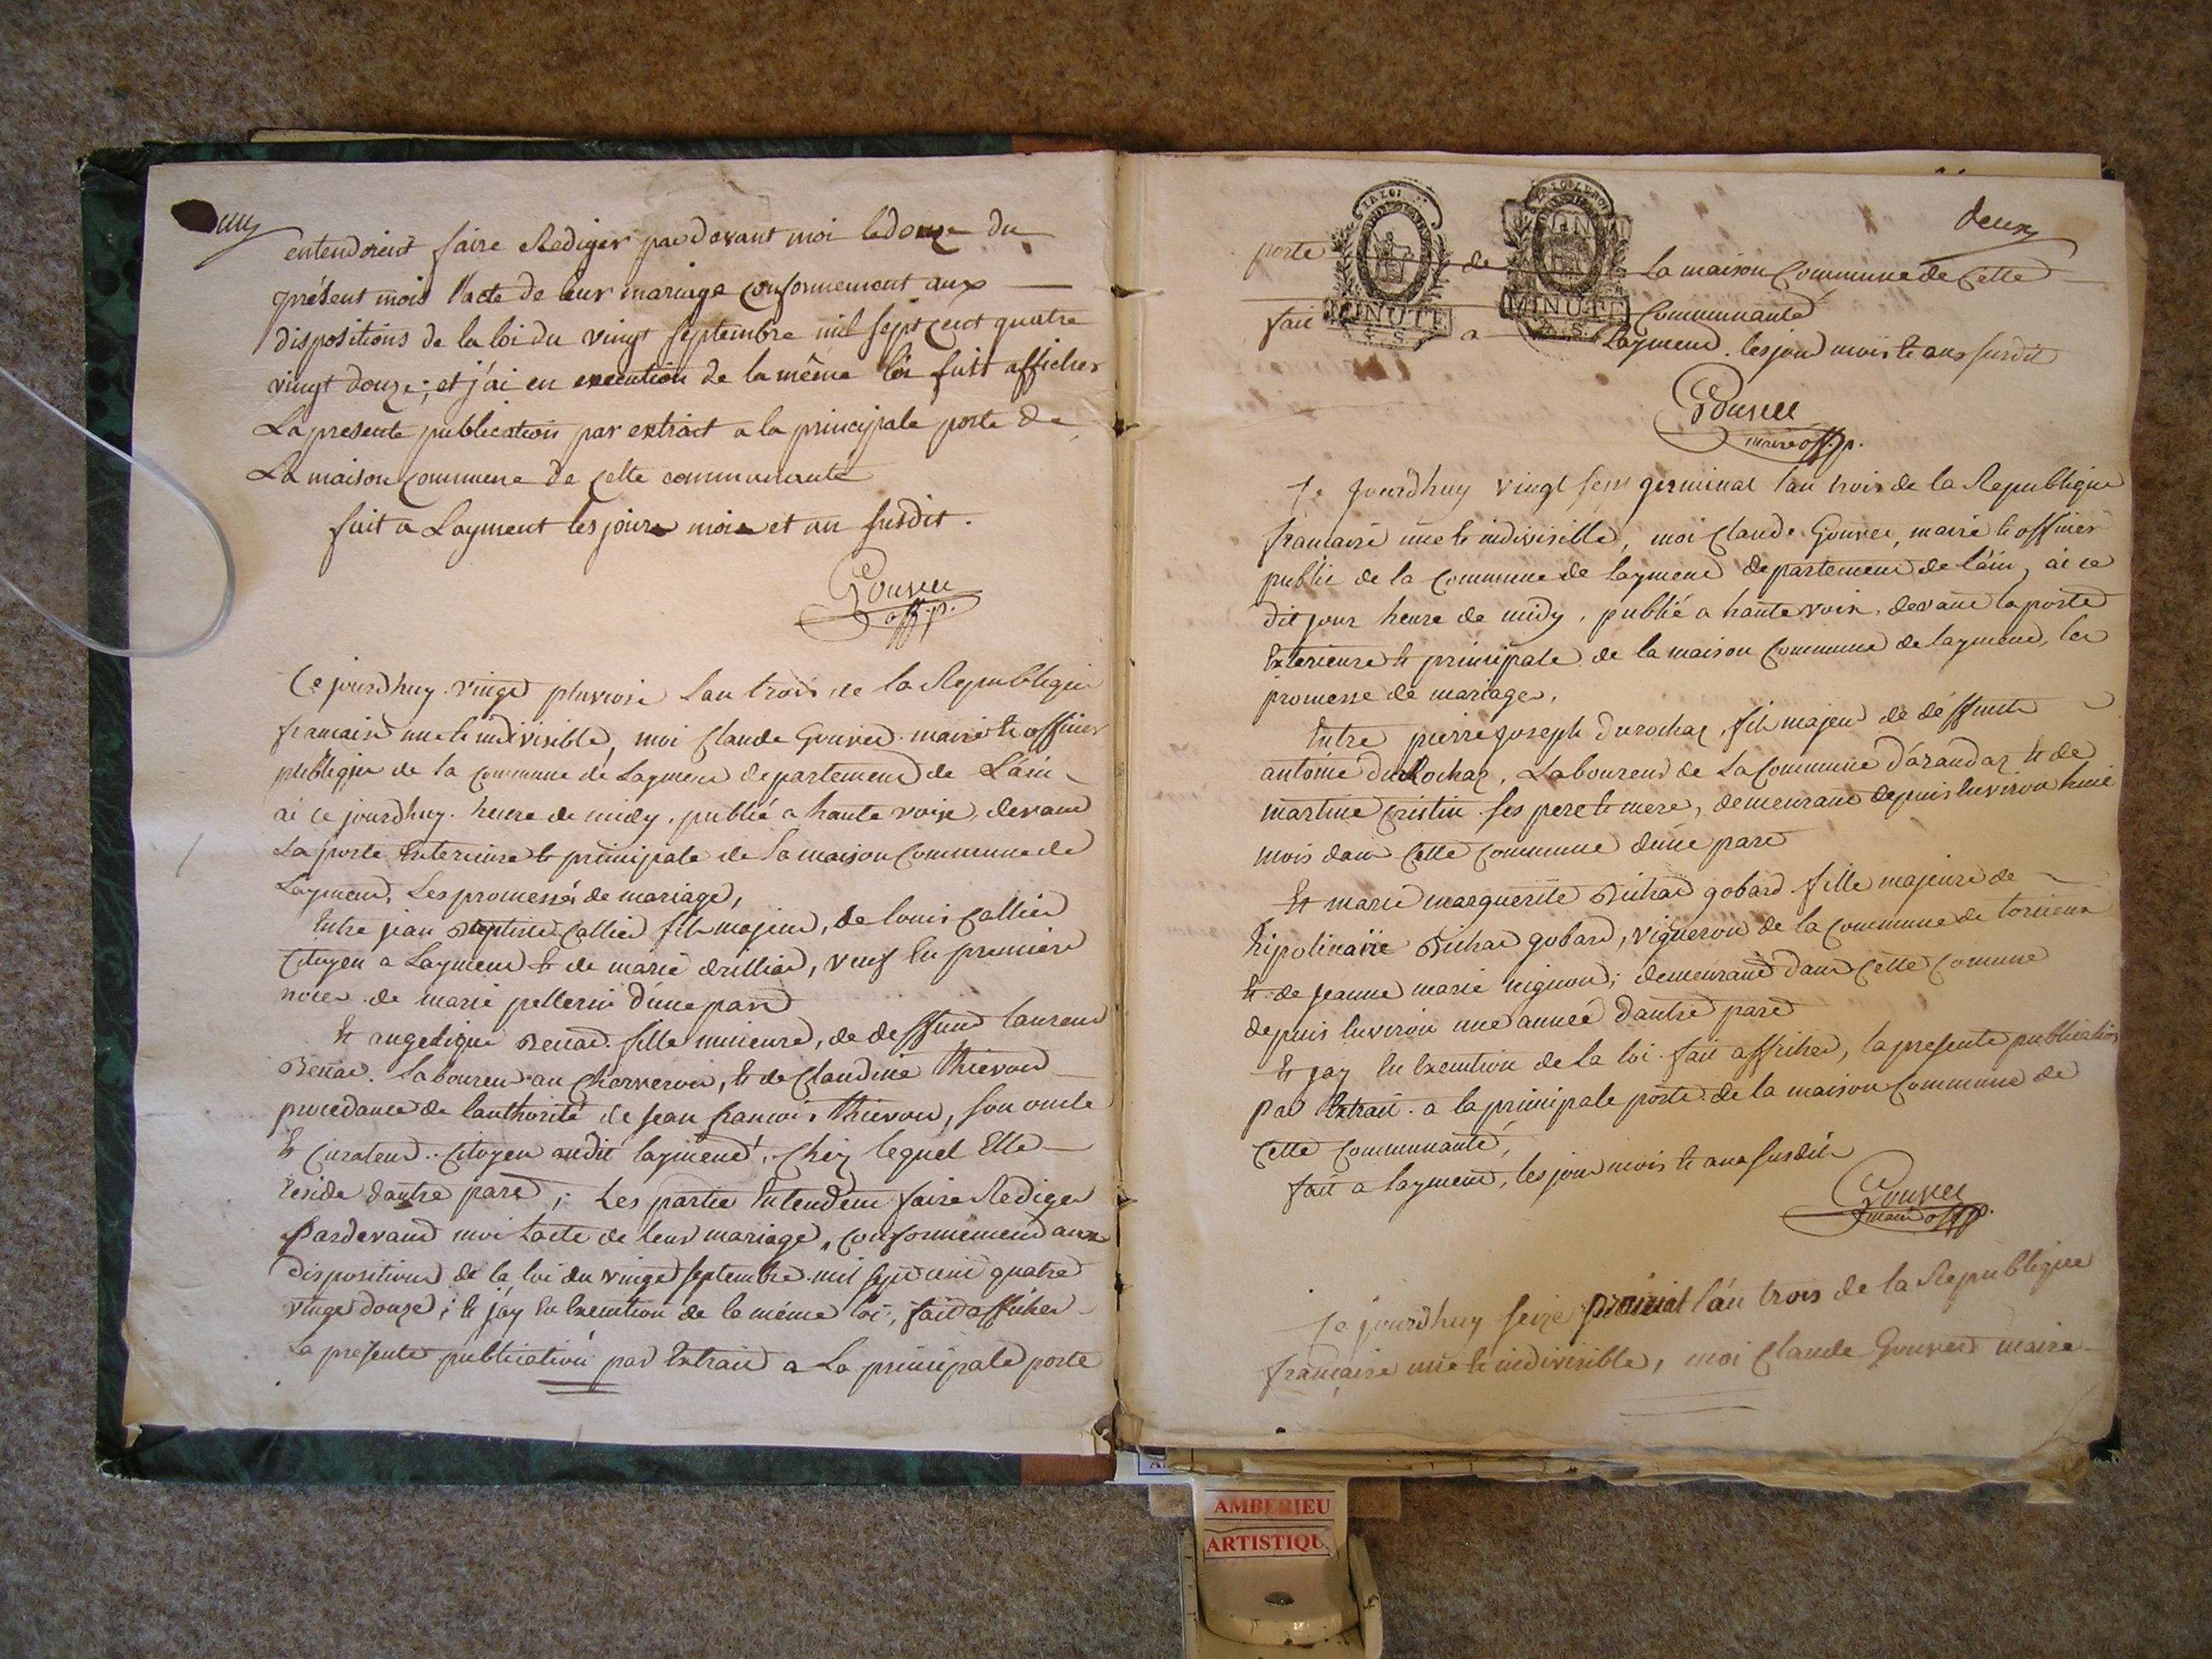 entendoient faire Rediger pardevant moi le douze du
présent mois l'acte de leur mariage conformement aux
dispositions de la loi du vingt septembre mil sept cent quatre
vingt douze; et j'ai en execution de la même loi fait afficher
La presente publication par extrait a la principale porte de
La maison commune de cette communauté
fait a Layment les jour mois et an susdit.
Gouvee
off. p.
Ce jourdhuy vingt pluviose l'an trois de la Republique
francaise une et indivisible, moi Claude Gouvee maire et officier
publique de la commune de Layment departement de L'ain
ai ce jourdhuy heure de midy, publié a haute voix, devant
La porte Exterieure et principale de la maison Commune de
Layment, Les promesses de mariage,
Entre jean Baptiste Collier fils majeur, de louis Collier
Citoyen a Layment et de marie drillier, veuf en premiere
noces de marie pellerin d'une part
Et angelique Benard fille mineure, de deffunt laurent
Benard laboureur au Charveron, et de Claudine thievon
procedante de l'authorité de jean francois thievon, son oncle
et Curateur Citoyen audit layment, Chez lequel Elle
reside d'autre part; Les parties Entendent faire Rediger
Pardevant moi l'acte de leur mariage, conformement aux
dispositions de la loi du vingt septembre mil sept cent quatre
vingt douze; et j'ay En Execution de la même loi, fait afficher
La presente publication par Extrait a La principale porte
deux
porte de la maison Commune de Cette
Communauté
fait a Layment les jour mois et ans susdit
LA LOI
MINUTE
MINUTE
Gouvee
maire off. p.
Ce jourdhuy vingt sept germinal l'an trois de la Republique
francaise une et indivisible, moi Claude Gouvee, maire et officier
public de la Commune de layment departement de l'ain, ai ce
dit jour heure de midy, publié a haute voix, devant la porte
Exterieure et principale de la maison Commune de layment, les
promesse de mariage,
Entre pierre joseph durochaz, fils majeur de deffunt
antoine du Rochaz, Laboureur de La Commune d'arandaz et de
martine Cristin ses pere et mere, demeurant depuis Environ huit
mois dans Cette Commune d'une part
Et marie marguerite Bichat gobard fille majeure de
hipolinaire Bichat gobard, vigneron de la Commune de torcieux
et de jeanne marie mignon; demeurant dans Cette Comune
depuis Environ une année d'autre part
Et j'ay En Execution de la loi fait afficher, la presente publication
par Extrait a la principale porte de la maison Commune de
Cette Communauté,
fait a layment, les jour mois et ans susdit
Gouvee
maire off. p.
Ce jourdhuy seize prairial l'an trois de la Republique
française une et indivisible, moi Claude Gouvee maire
AMBERIEU
ARTISTIQU